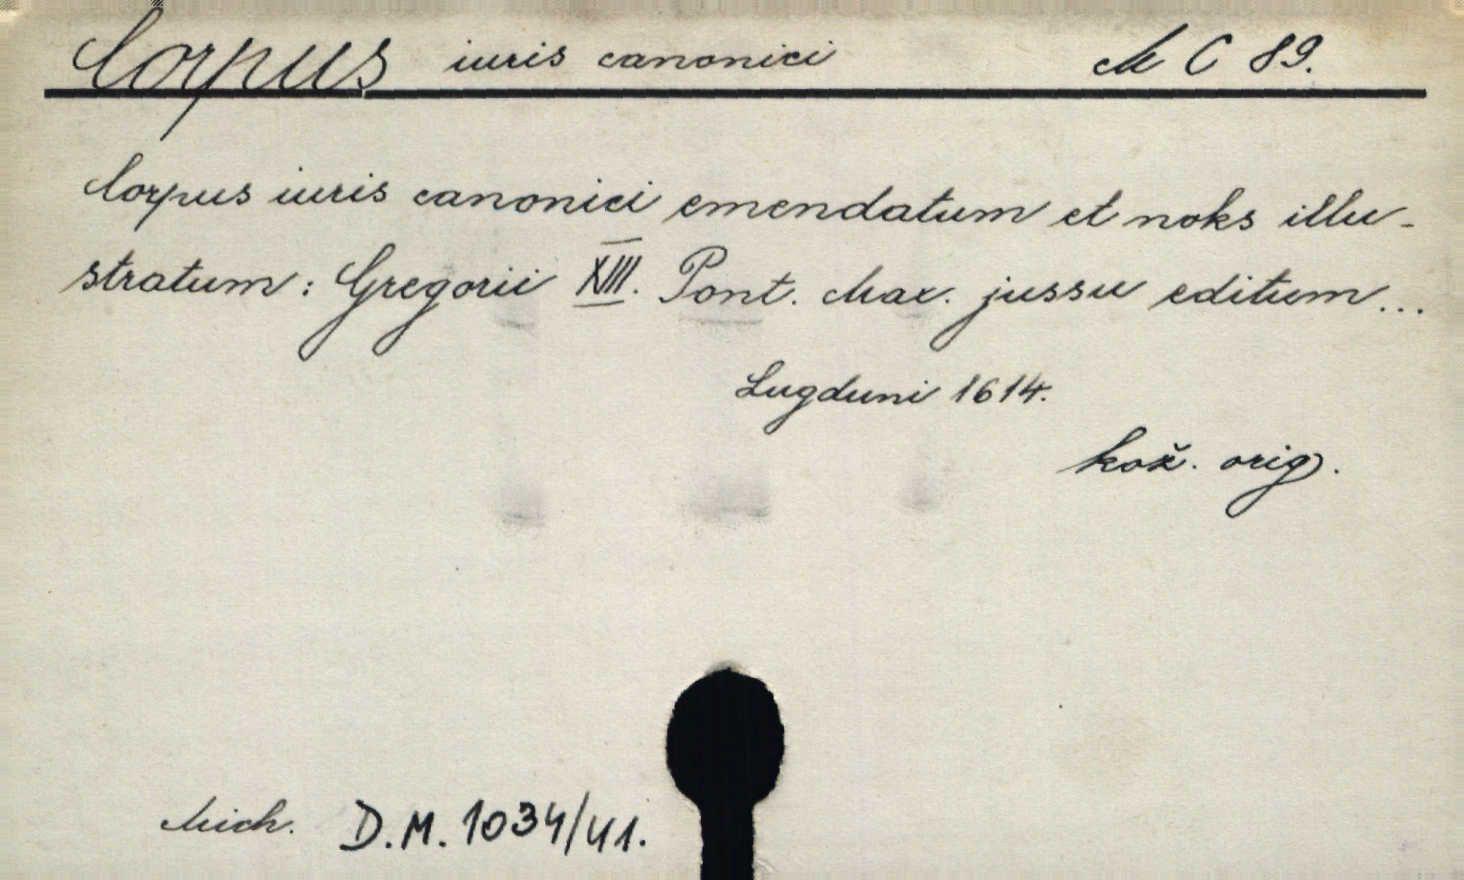 Corpus iuris canonici M C 89.
Corpus iuris canonici emendatum et notis illu-
stratum: Gregorii XIII. Pont. Max. jussu editum...
Lugduni 1614.
kož. orig.
Mich. D.M. 1034/41.